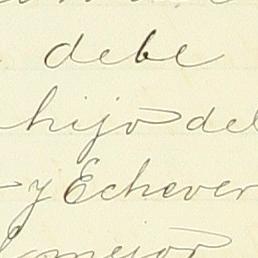 debe
hijo del
y Echever
mejor